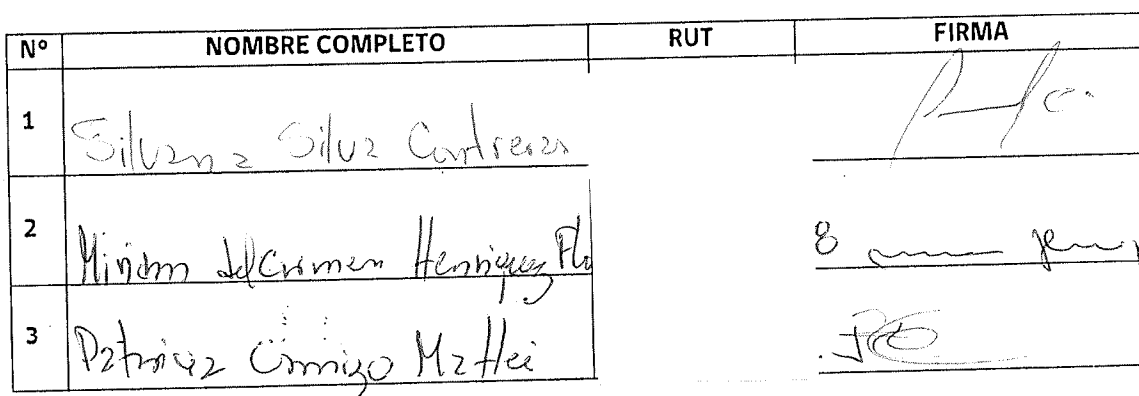 Nº NOMBRE COMPLETO RUT FIRMA
1 Silvana Silva Contreras
2 Miriam del Carmen Henriquez Flo
3 Patricia Matlei